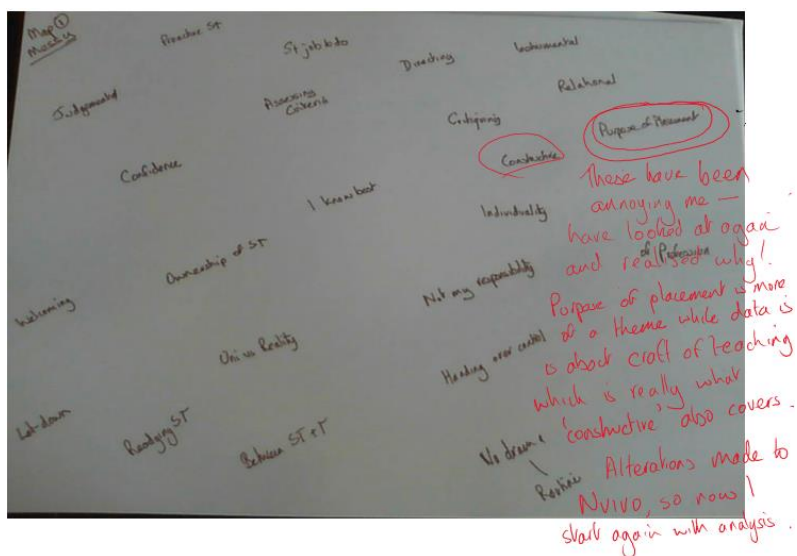 Map ①
Messy
Proactive ST
St job to do
Directing
Instrumental
Judgemental
Assessing
Criteria
Relational
Critiquing
Purpose of Placement
Confidence
Constructive
I know best
Individuality
of Profession
Ownership of ST
Not my responsibility
Welcoming
Uni vs Reality
Handing over control
Let-down
Readying ST
Between ST + T
No drama +
Routine
These have been
annoying me —
have looked at again
and realised why!
Purpose of placement is more
of a theme while data is
is about craft of teaching
which is really what
'constructive' also covers.
Alterations made to
NVivo, so now I
start again with analysis.